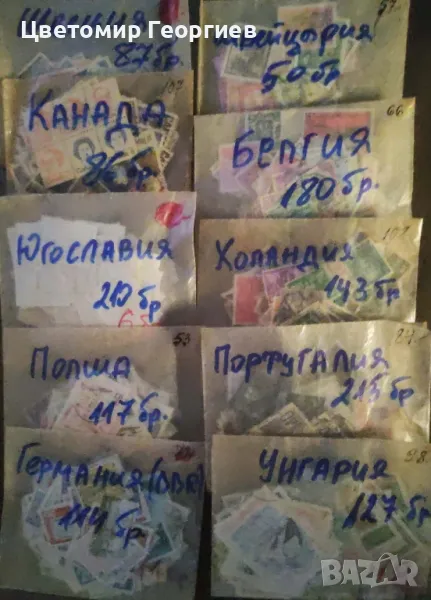 Цветомир Георгиев
87 бр.
57
Швейцария
50 бр.
107
КАНАДА
86 бр.
66
БЕЛГИЯ
180 бр.
ЮГОСЛАВИЯ
210 бр
65
ХОЛАНДИЯ
143 бр
53
ПОЛША
117 бр.
84
ПОРТУГАЛИЯ
215 бр
ГЕРМАНИЯ (DDR)
114 бр.
98
УНГАРИЯ
127 бр.
BAZAR